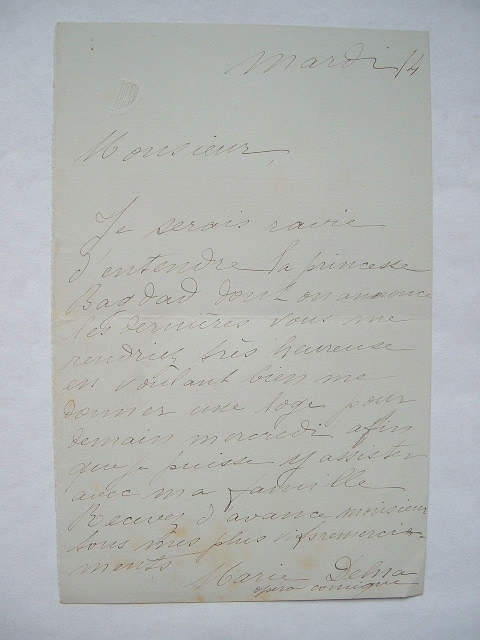 Mardi 14
Monsieur,
Je serais ravie
d'entendre la princesse
Bagdad dont on annonce
les dernières vous me
rendriez très heureuse
en voulant bien me
donner une loge pour
demain mercredi afin
que je puisse y assister
avec ma famille
Recevez d'avance monsieur
tous mes plus vifs remercie-
ments
Marie Delna
opéra comique